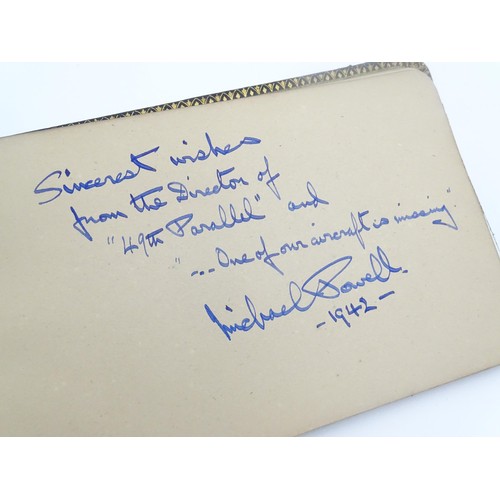 Sincerest wishes
from the Director of
"49th Parallel" and
"... One of our aircraft is missing".
Michael Powell.
- 1942 -